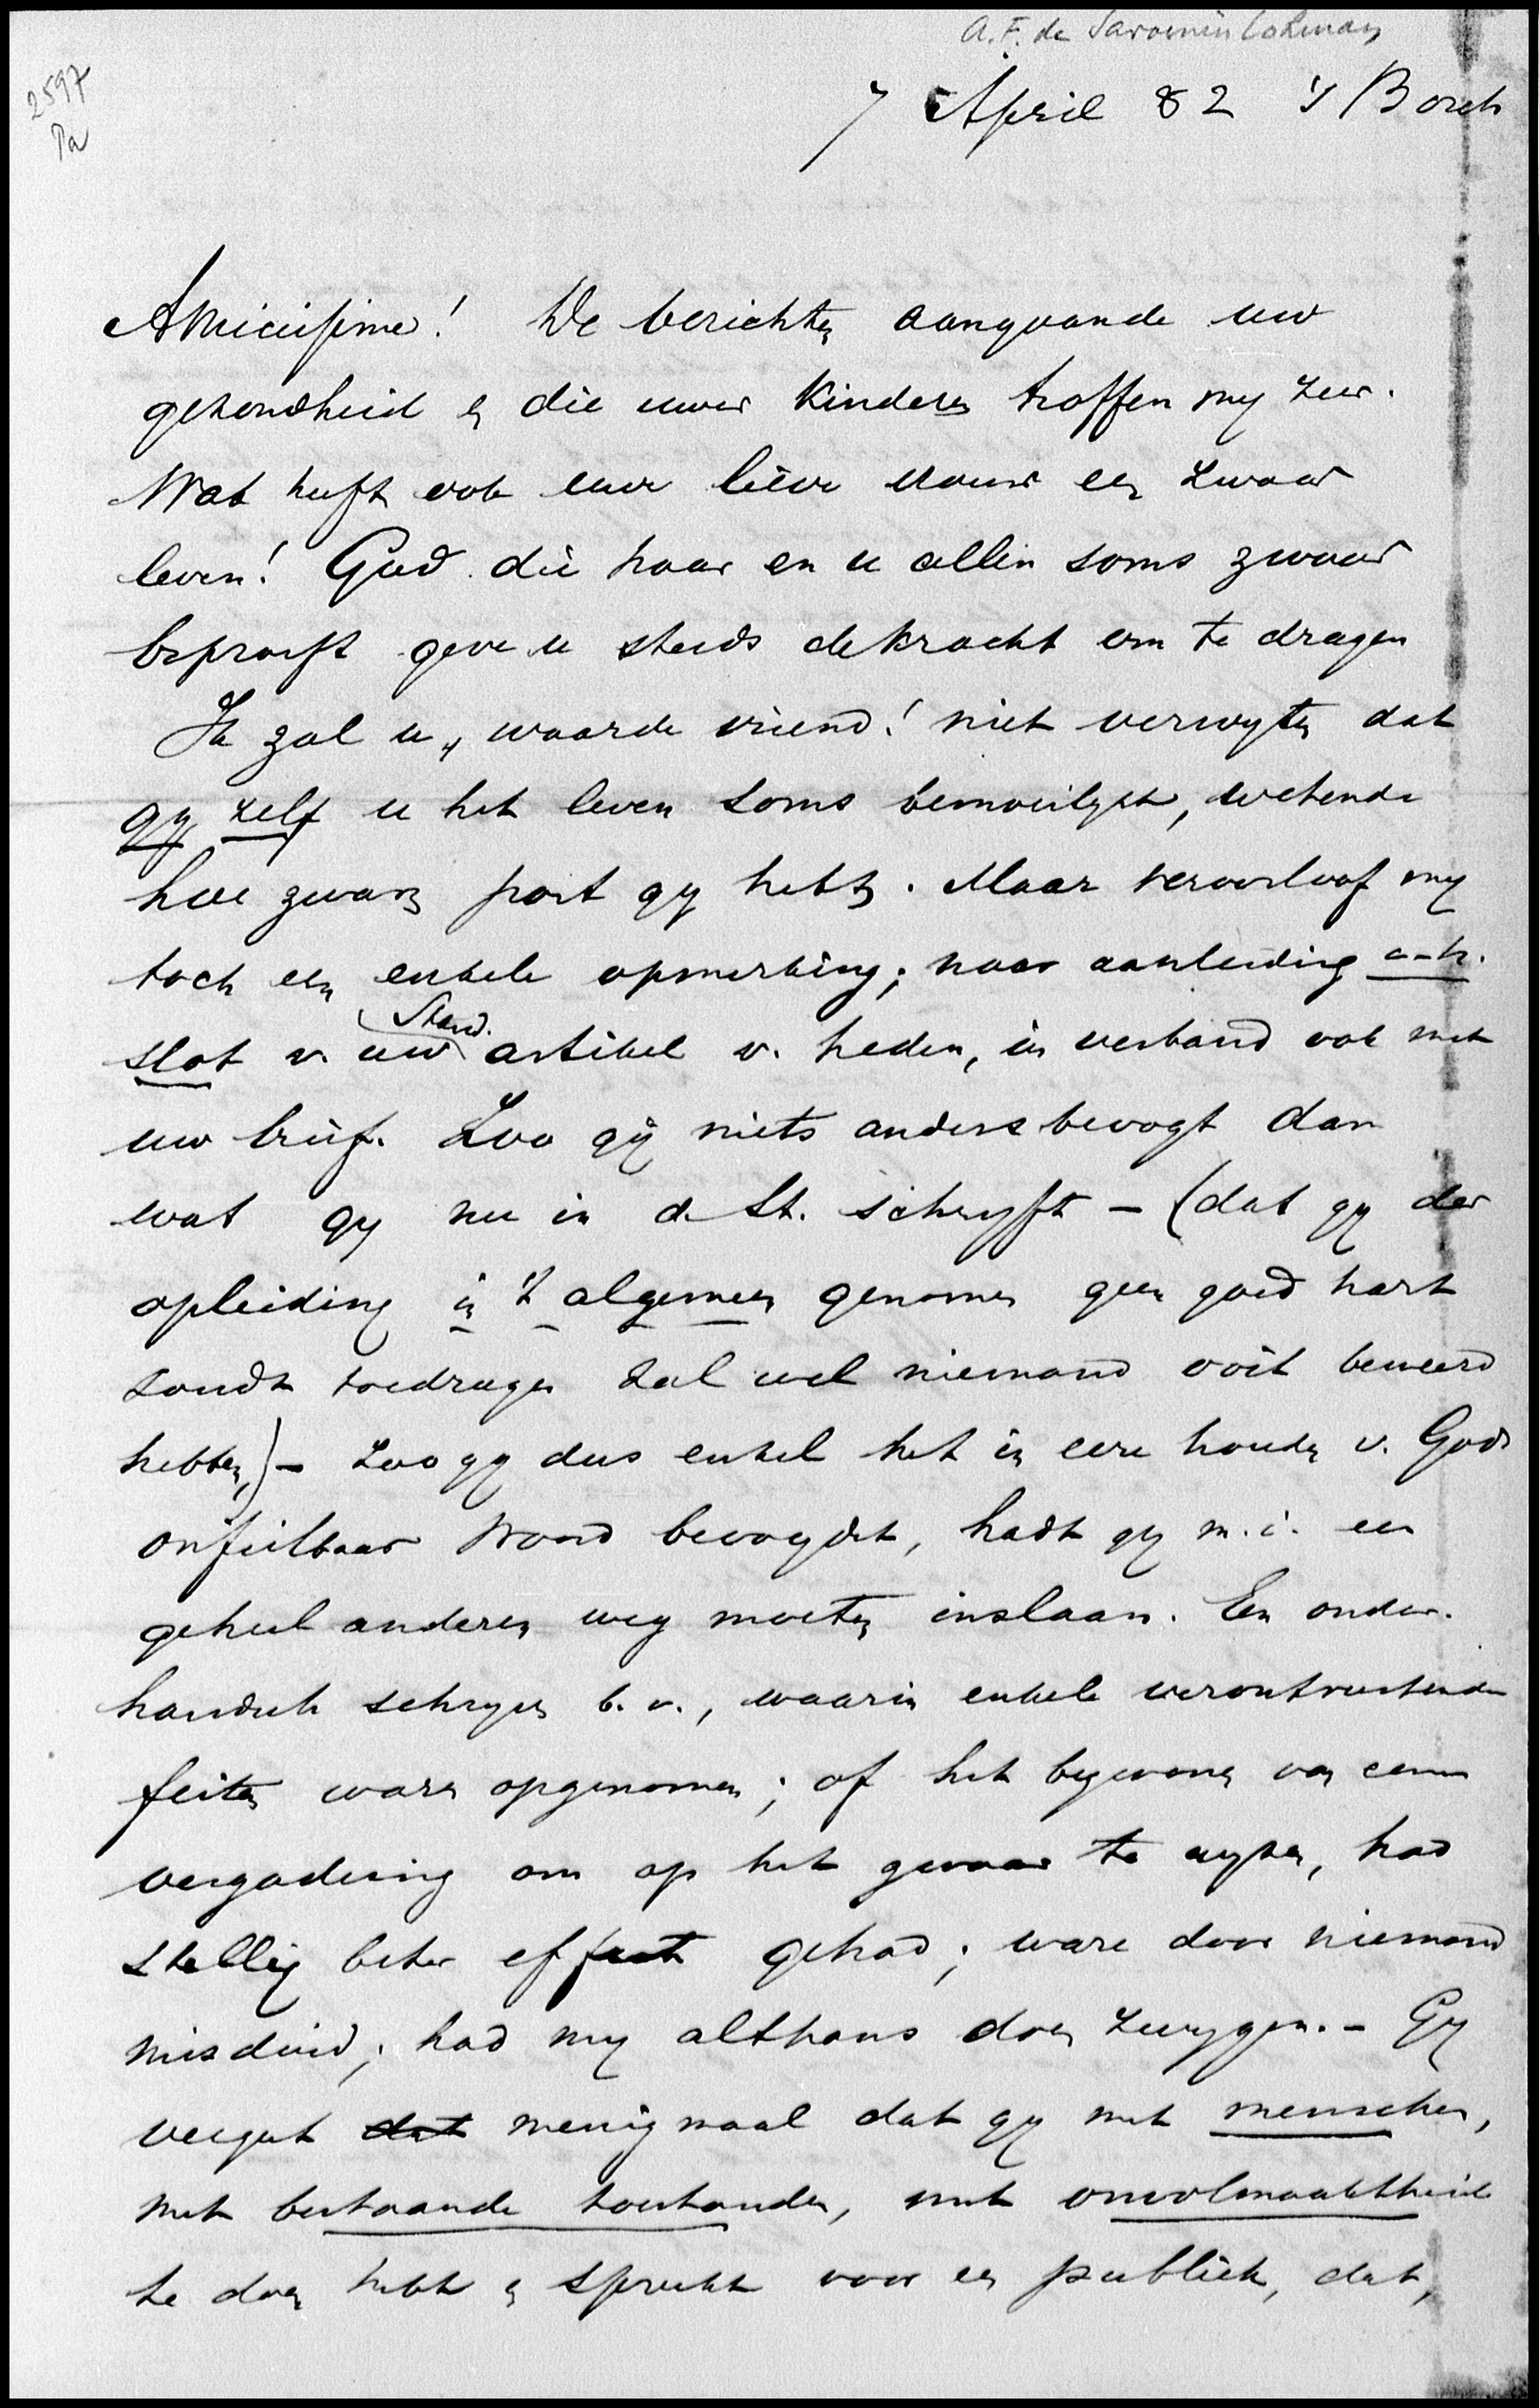 A.F. de Savornin Lohman
2597
Pa
7 April 82 's Bosch
Amicissime! De berichten aangaande uw
gezondheid en die uwer kinderen troffen my zeer.
Wat heeft ook uwe lieve vrouw een zwaar
leven! God die haar en u allen soms zwaar
beproeft geve u steeds de kracht om te dragen
Ik zal u, waarde vriend! niet verwyten dat
gy zelf u het leven soms bemoeilykt, wetende
hoe zwaren post gy hebt. Maar veroorloof my
toch een enkele opmerking; naar aanleiding v. h.
Stand.
slot v. uw artikel v. heden, in verband ook met
uw brief. Zoo gij niets anders beoogt dan
wat gy nu in de St. schryft - (dat gy der
opleiding in 't algemeen genomen geen goed hart
zoudt toedragen zal wel niemand ooit beweerd
hebben,) - Zoo gy dus enkel het in eere houden v. Gods
onfeilbaar Woord beoogdet, hadt gy m.i. een
geheel anderen weg moeten inslaan. Een onder-
handsch schryven b.v., waarin enkele verontrustende
feiten waren opgenomen; of het bywonen van eene
vergadering om op het gevaar te wyzen, had
stellig beter effect gehad; ware door niemand
misduid; had my althans doen zwygen. - Gy
vergeet dat menigmaal dat gy met menschen,
met bestaande toestanden, met onvolmaaktheid
te doen hebt en spreekt voor een publiek, dat,